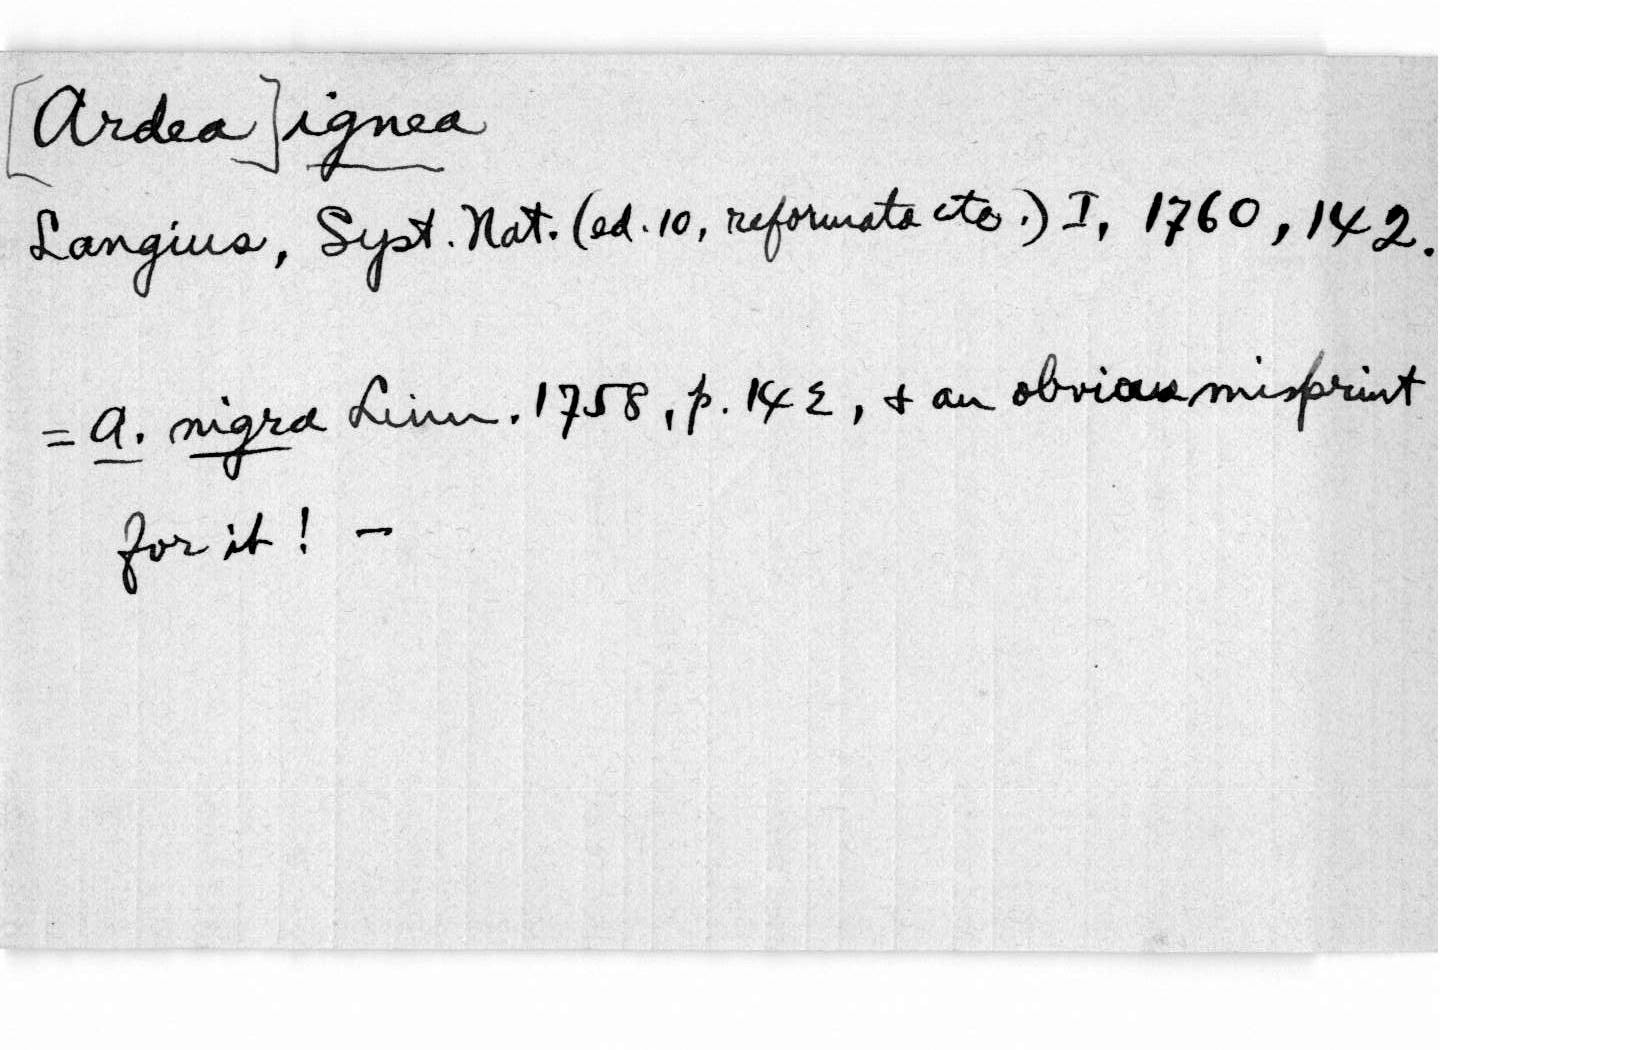 [Ardea] ignea
Langius, Syst. Nat. (ed. 10, reformata etc.) I, 1760, 142.
= A. nigra Linn. 1758, p. 142, & an obvious misprint
for it! —